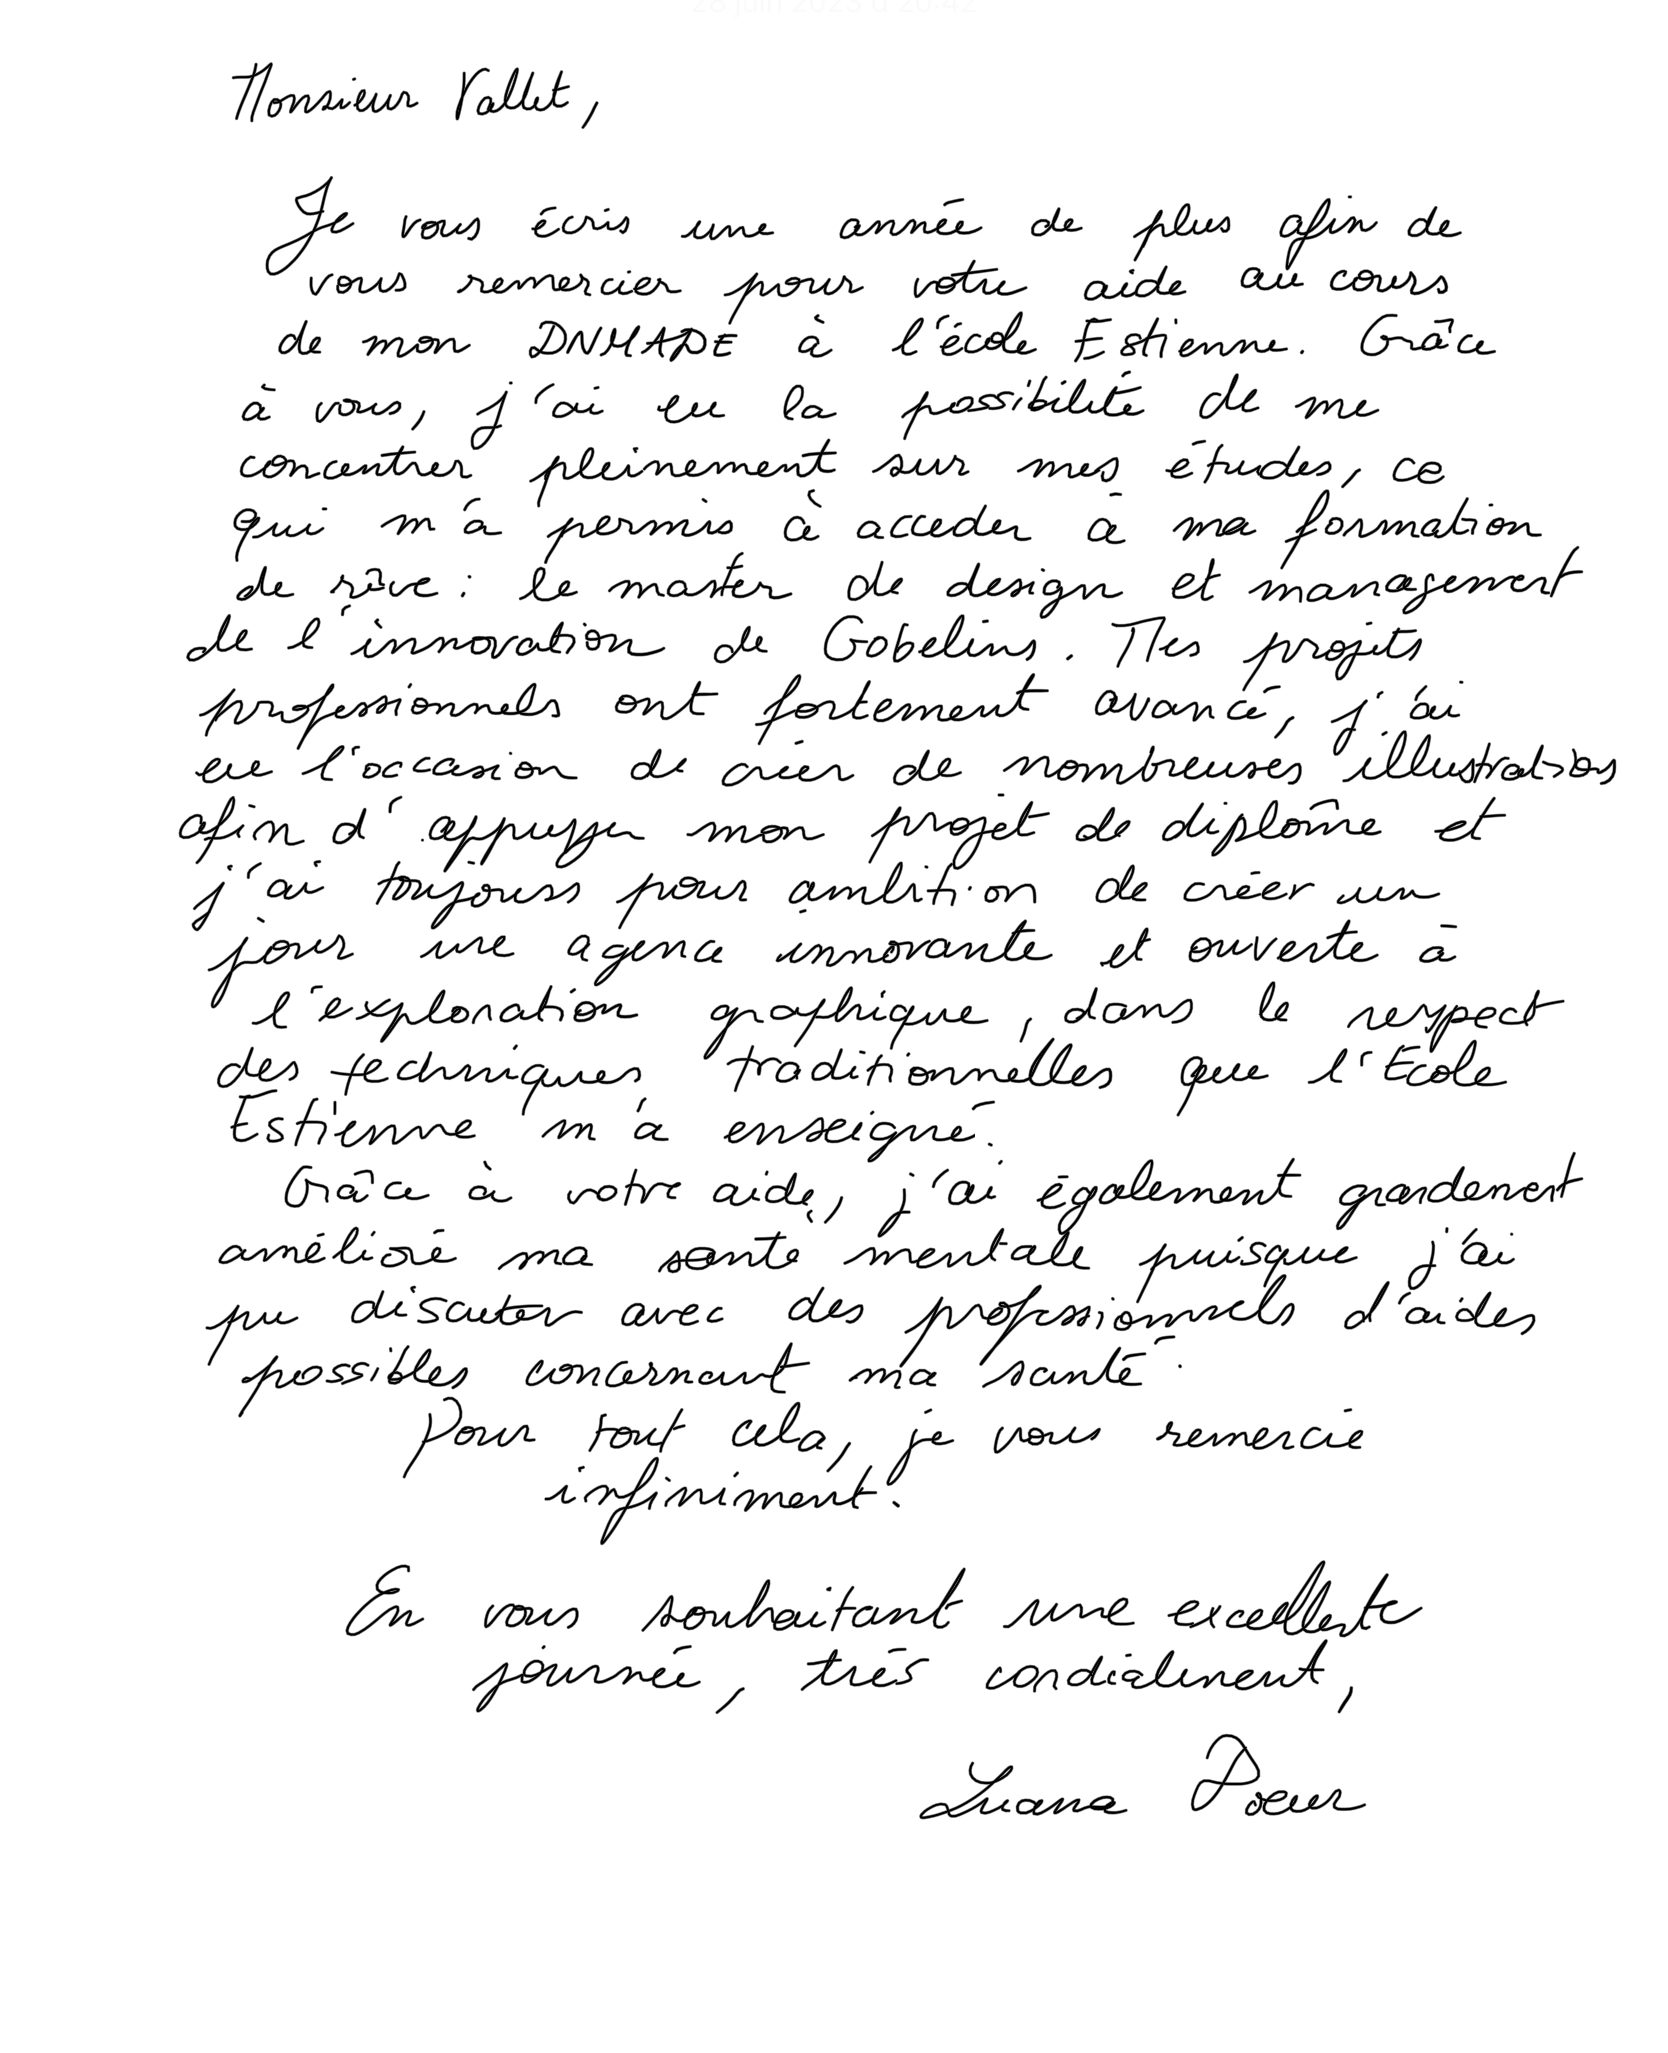 28 juin 2023 à 20:42
Monsieur Vallet,
Je vous écris une année de plus afin de
vous remercier pour votre aide au cours
de mon DNMADE à l'école Estienne. Grâce
à vous, j'ai eu la possibilité de me
concentrer pleinement sur mes études, ce
qui m'a permis à acceder à ma formation
de rêve : le master de design et management
de l'innovation de Gobelins. Mes projets
professionnels ont fortement avancé, j'ai
eu l'occasion de créer de nombreuses illustrations
afin d'appuyer mon projet de diplôme et
j'ai toujours pour ambition de créer un
jour une agence innovante et ouverte à
l'exploration graphique, dans le respect
des techniques traditionnelles que l'Ecole
Estienne m'a enseigné.
Grâce à votre aide, j'ai également grandement
amélioré ma santé mentale puisque j'ai
pu discuter avec des professionnels d'aides
possibles concernant ma santé.
Pour tout cela, je vous remercie
infiniment.
En vous souhaitant une excellente
journée, très cordialement,
Luana Poeur